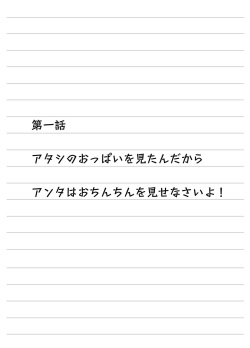 第一話
アタシのおっぱいを見たんだから
アンタはおちんちんを見せなさいよ！